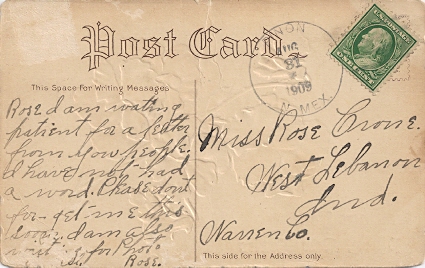 Post Card
NON
AUG
31
1909
N. MEX.
This Space for Writing Messages
Rose I am wating
patient for a letter
from you people.
I have not had
a word. Please dont
for-get me this
soon. I am also
for Photo
Rose.
Miss Rose Crone.
West Lebanon
Ind.
Warren Co.
This side for the Address only.